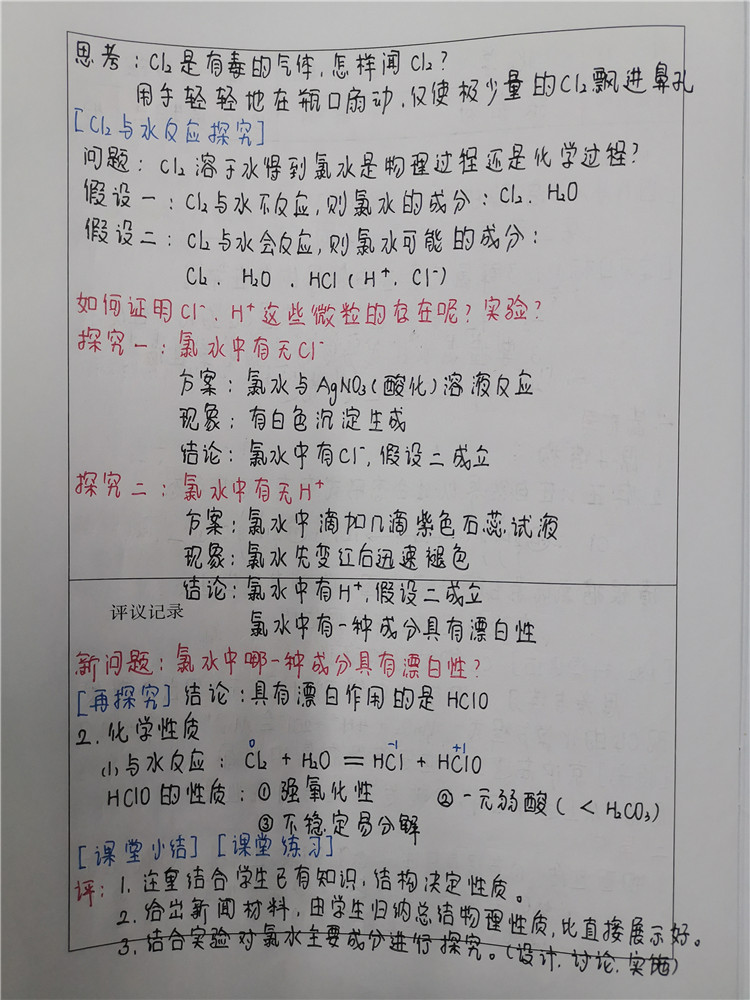 思考：Cl₂是有毒的气体，怎样闻Cl₂？
用手轻轻地在瓶口扇动，仅使极少量的Cl₂飘进鼻孔
[Cl₂与水反应探究]
问题：Cl₂溶于水得到氯水是物理过程还是化学过程？
假设一：Cl₂与水不反应，则氯水的成分：Cl₂、H₂O
假设二：Cl₂与水会反应，则氯水可能的成分：
Cl₂、H₂O、HCl（H⁺、Cl⁻）
如何证明Cl⁻、H⁺这些微粒的存在呢？实验？
探究一：氯水中有无Cl⁻
方案：氯水与AgNO₃（酸化）溶液反应
现象：有白色沉淀生成
结论：氯水中有Cl⁻，假设二成立
探究二：氯水中有无H⁺
方案：氯水中滴加几滴紫色石蕊试液
现象：氯水先变红后迅速褪色
结论：氯水中有H⁺，假设二成立
评议记录
氯水中有一种成分具有漂白性
新问题：氯水中哪一种成分具有漂白性？
[再探究] 结论：具有漂白作用的是HClO
2．化学性质
(1)与水反应：Cl₂ + H₂O = HCl + HClO
0 -1 +1
HClO的性质：①强氧化性 ②一元弱酸（< H₂CO₃）
③不稳定易分解
[课堂小结] [课堂练习]
评：1．注重结合学生已有知识，结构决定性质。
2．给出新闻材料，由学生归纳总结物理性质，比直接展示好。
3．结合实验对氯水主要成分进行探究。（设计、讨论、实施）